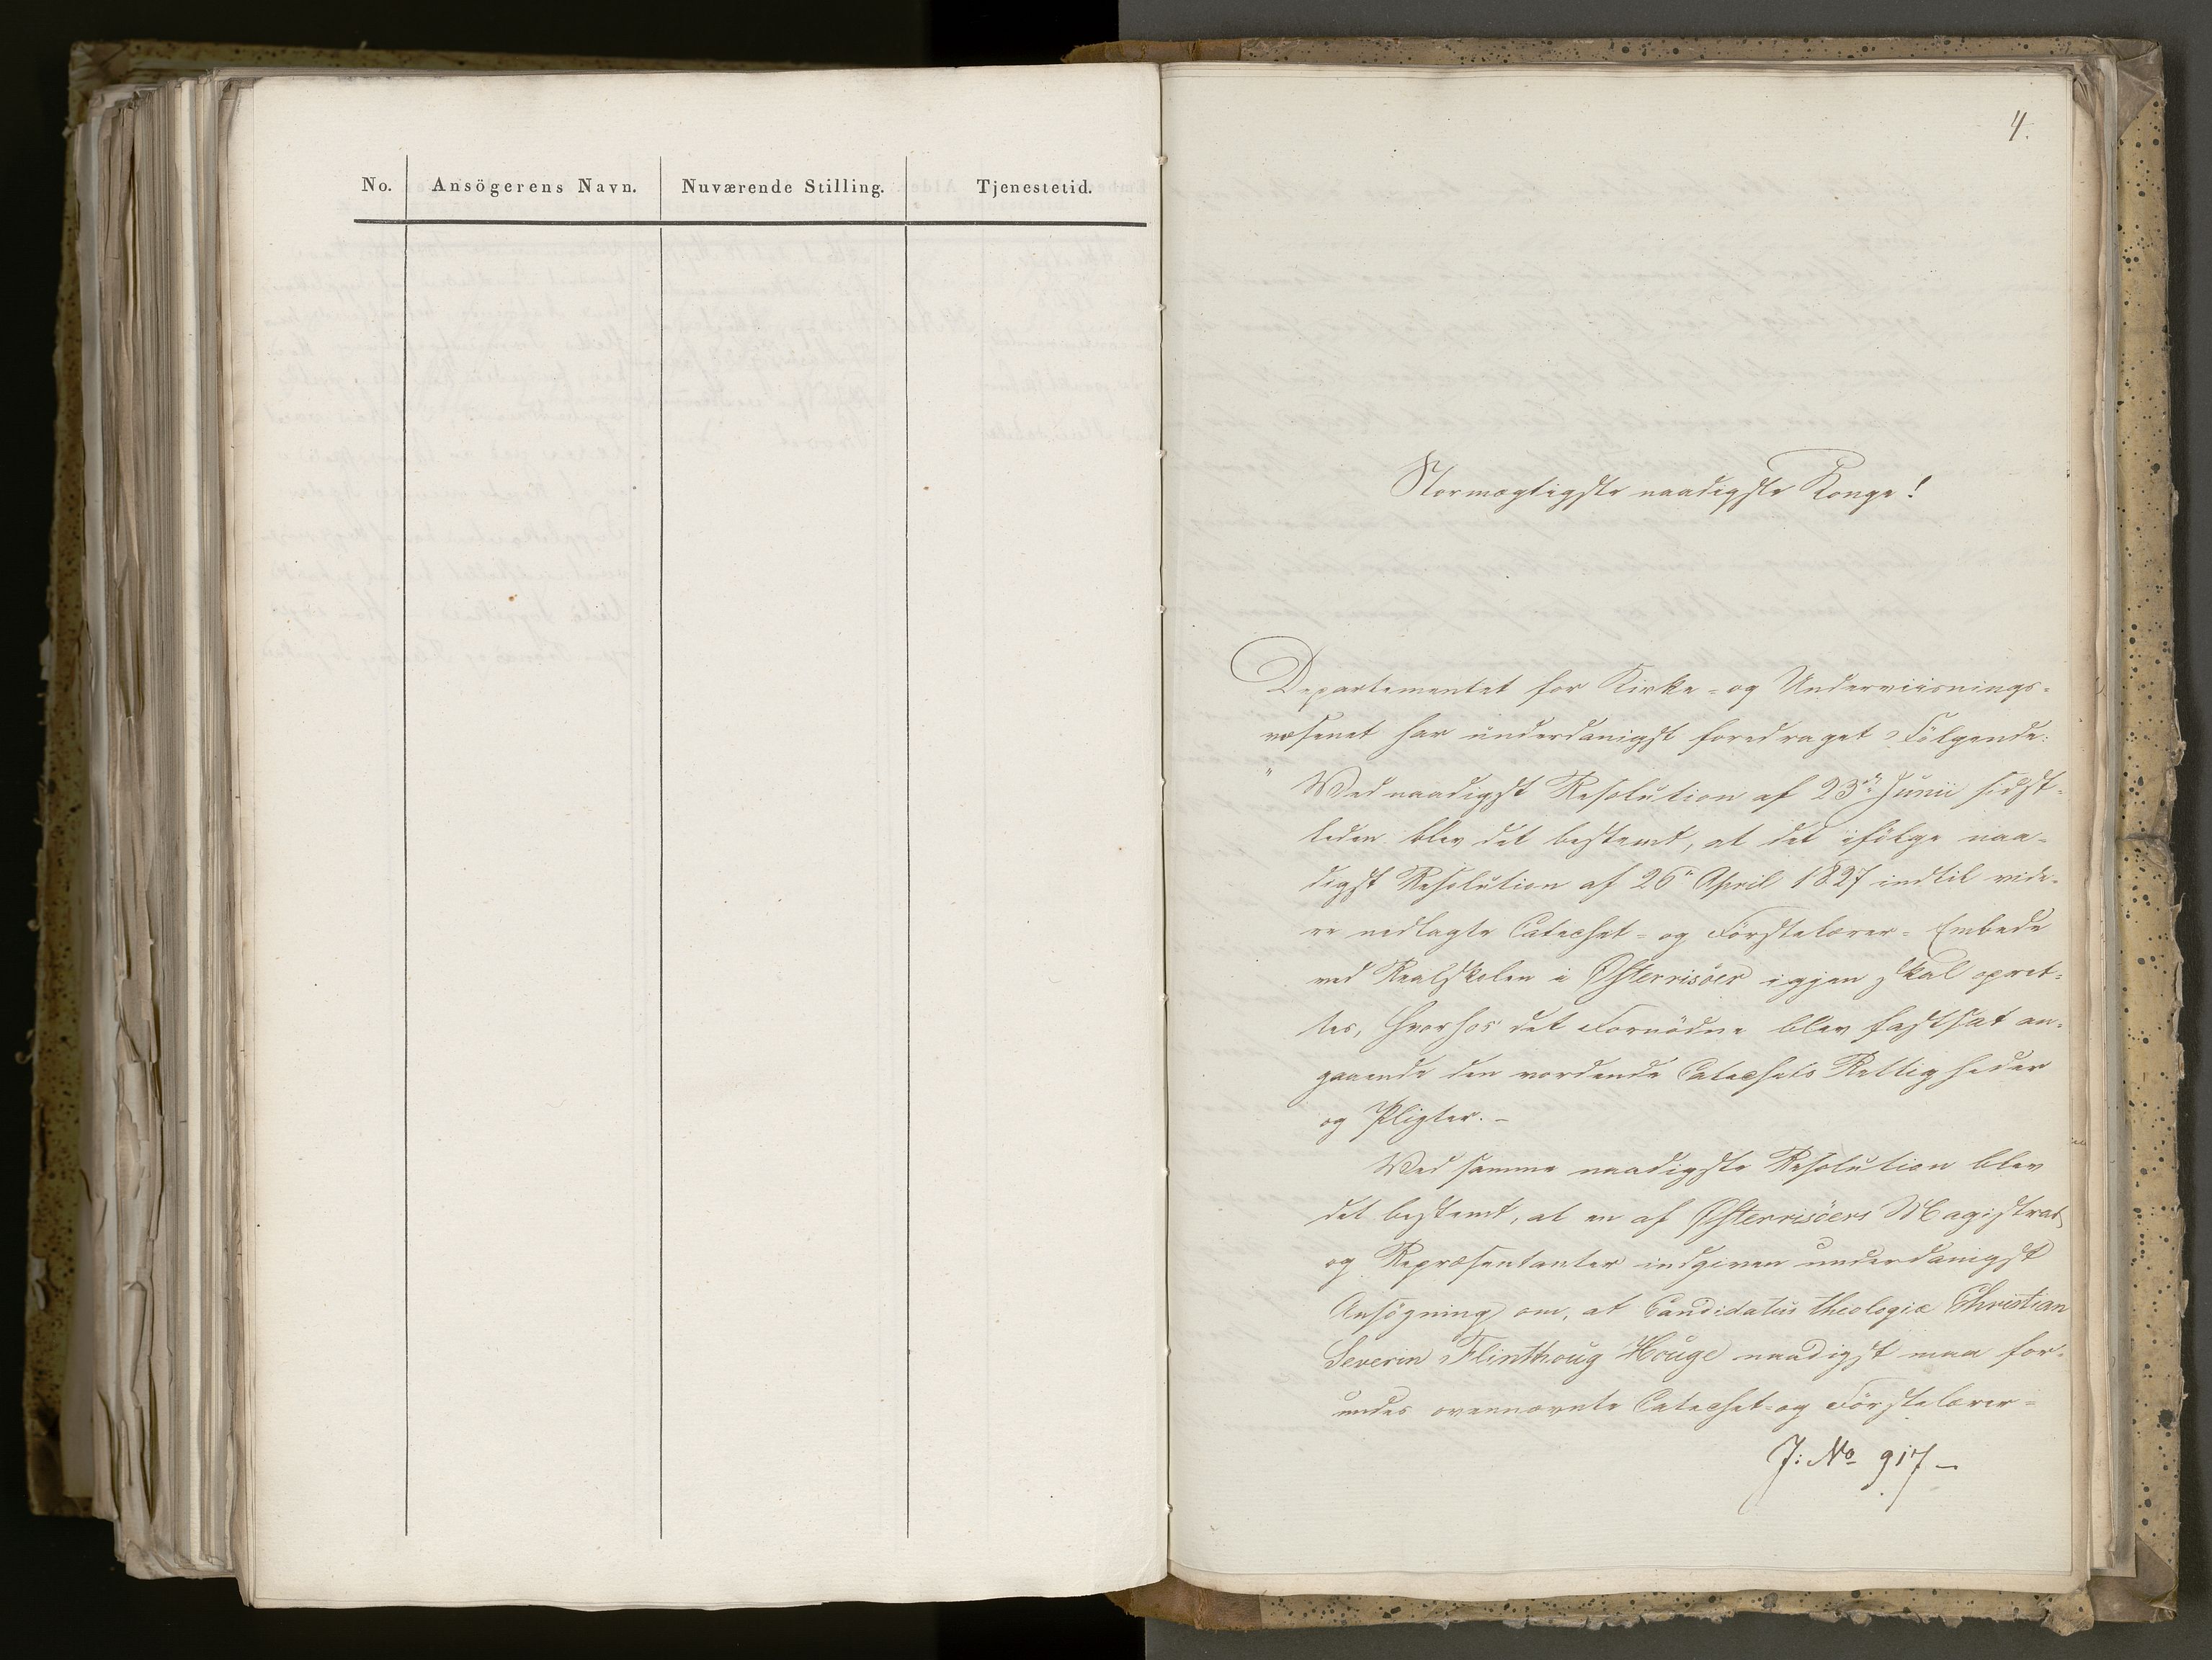 No. Ansögerens Navn. Nuværende Stilling. Tjenestetid.
4.
Stormægtigste naadigste Konge!
Departementet for Kirke- og Underviisnings-
væsenet har underdanigst foredraget Fölgende:
" Ved naadigst Resolution af 23de Junii sidst-
leden blev det bestemt, at det ifölge naa-
digst Resolution af 26de April 1827 indtil vide-
re nedlagte Catechet- og Förstelærer-Embede
ved Realskolen i Østerrisöer igjen skal opret-
tes, hvorhos det Fornödne blev fastsat an-
gaaende den vordende Catechets Rettigheder
og Pligter. -
Ved samme naadigste Resolution blev
det bestemt, at en af Østerrisöers Magistrat
og Repræsentanter indgiven underdanigst
Ansögning om, at Candidatus theologiæ Christian
Severin Flinthoug Houge naadigst maa for-
undes ovennævnte Catechet- og Förstelærer-
J: No 917 -